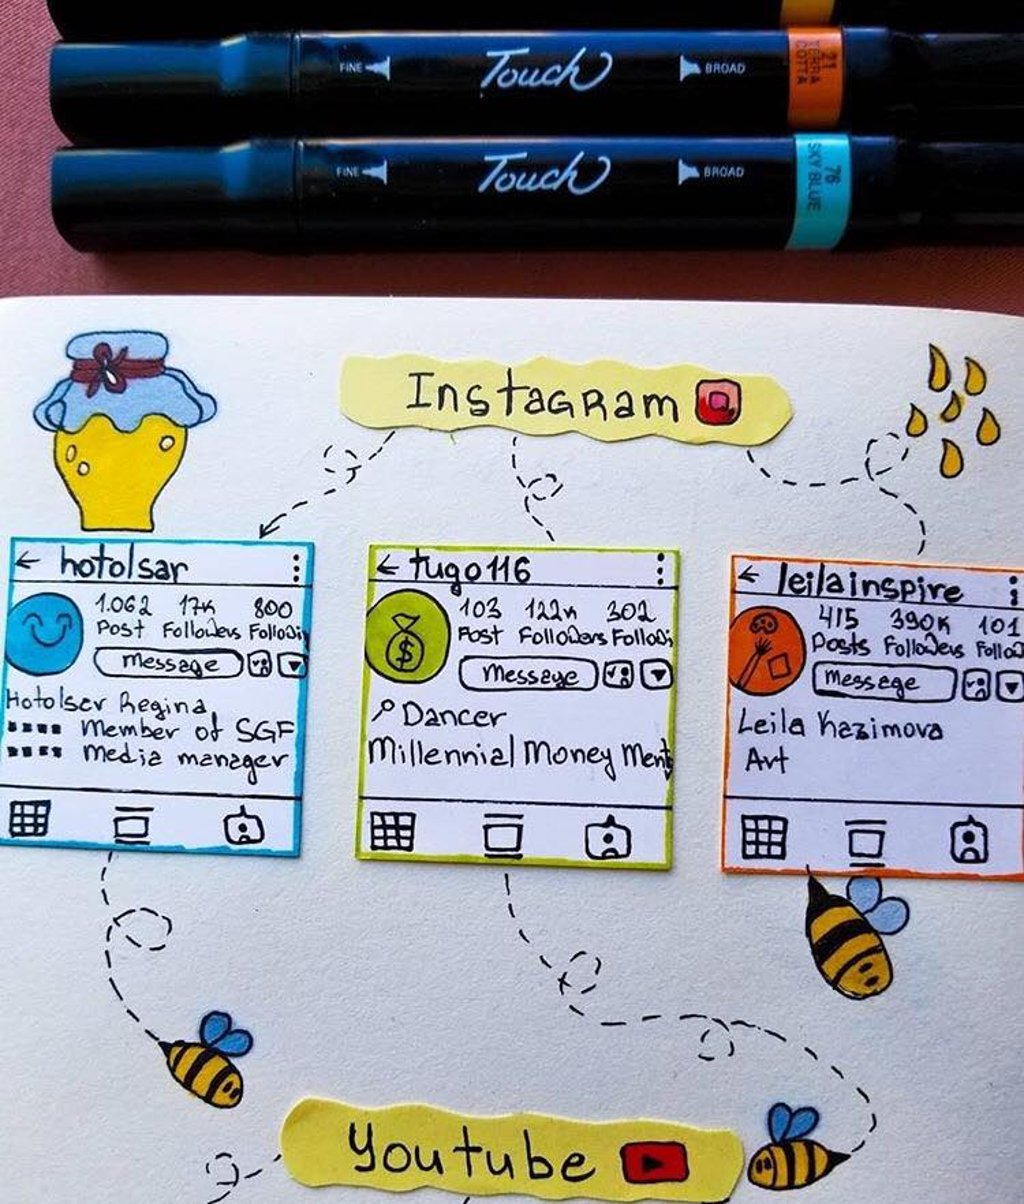 FINE Touch BROAD 21 TERRA COTTA
FINE Touch BROAD 76 SKY BLUE
Instagram
hotolsar
1.062 17K 800
Post Followers Followi
Message
Hotolser Regina
Member of SGF
Media manager
tugo116
103 122K 302
Post Followers Followi
Message
Dancer
Millennial Money Ment
leilainspire
415 390K 101
Posts Followers Follow
Message
Leila Kazimova
Art
Youtube